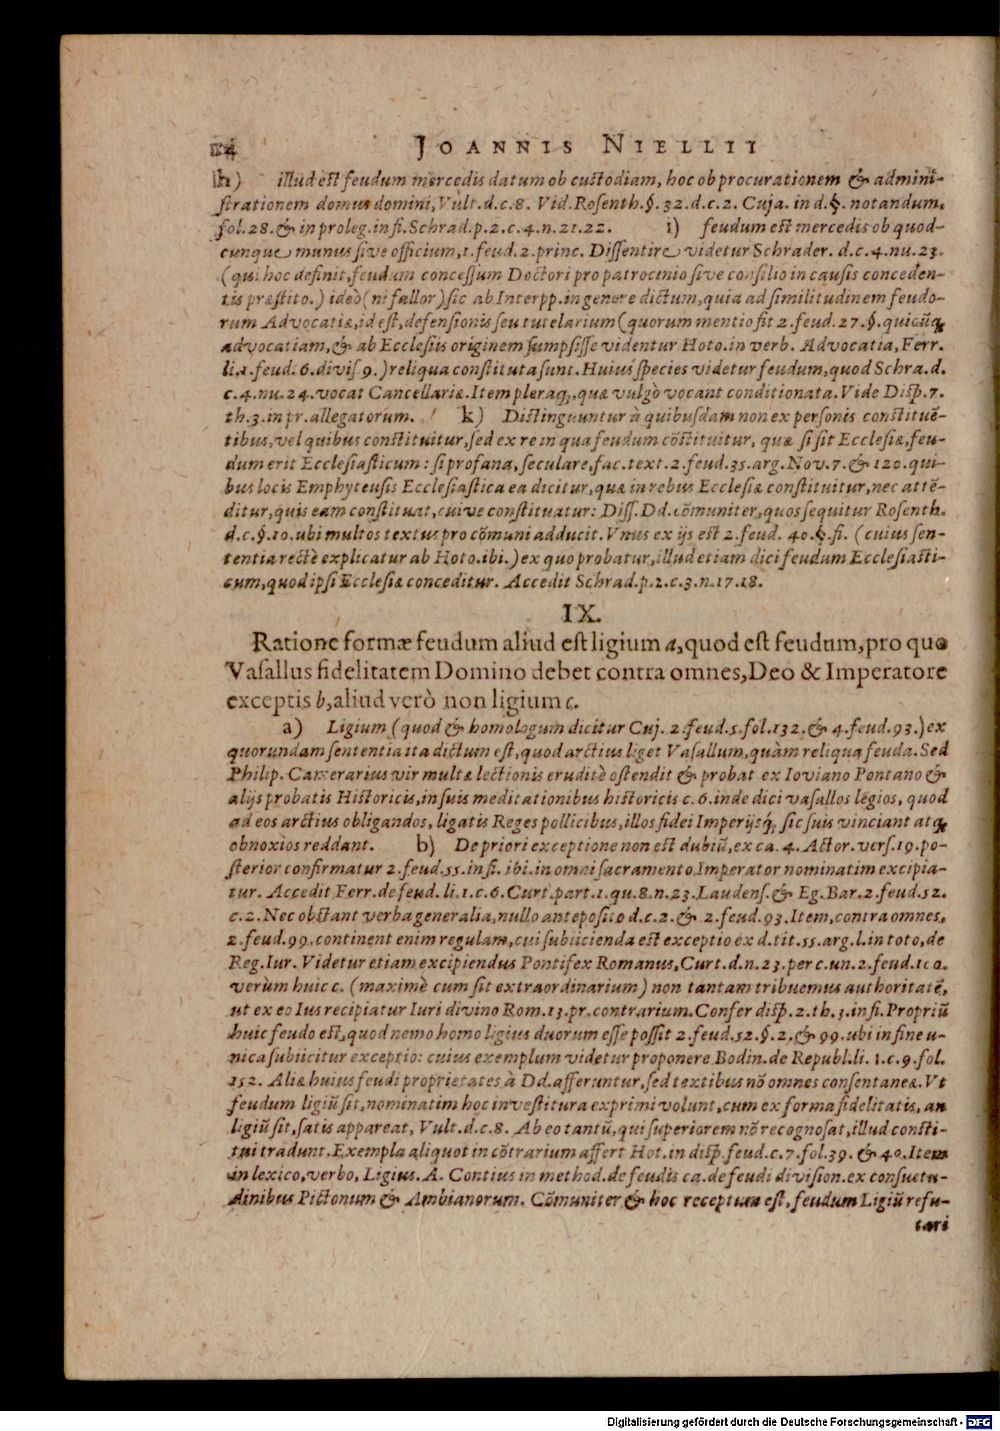 114 JOANNIS NIELLII
h) illud est feudum mercedis datum ob custodiam, hoc ob procurationem & admini-
strationem domus domini, Vult. d. c. 8. Vid. Rosenth. §. 32. d. c. 2. Cuja. in d. §. notandum.
fol. 28. & in proleg. in fi. Schrad. p. 2. c. 4. n. 21. 22. i) feudum est mercedis ob quod-
cunque munus sive officium, 1. feud. 2. princ. Dissentire videtur Schrader. d. c. 4. nu. 23.
(qui hoc definit, feudum concessum Doctori pro patrocinio sive consilio in causis conceden-
tis præstito.) ideò (ni fallor) sic ab Interpp. in genere dictum, quia ad similitudinem feudo-
rum Advocatiæ, id est, defensionis seu tutelarium (quorum mentio fit 2. feud. 27. §. quicūq;
advocatiam, & ab Ecclesiis originem sumpsisse videntur Hoto. in verb. Advocatia, Ferr.
li. 1. feud. 6. divis. 9.) reliqua constituta sunt. Huius species videtur feudum, quod Schra. d.
c. 4. nu. 24. vocat Cancellariæ. Item pleraq;, quæ vulgò vocant conditionata. Vide Disp. 7.
th. 3. in pr. allegatorum. k) Distinguuntur à quibusdam non ex personis constituē-
tibus, vel quibus constituitur, sed ex re in qua feudum cōstituitur, quæ si sit Ecclesiæ, feu-
dum erit Ecclesiasticum: si profana, seculare, fac. text. 2. feud. 35. arg. Nov. 7. & 120. qui-
bus locis Emphyteusis Ecclesiastica ea dicitur, quæ in rebus Ecclesiæ constituitur, nec attē-
ditur, quis eam constituat, cuive constituatur: Diss. Dd. cōmuniter, quos sequitur Rosenth.
d. c. §. 10. ubi multos textus pro cōmuni adducit. Vnus ex ijs est 2. feud. 40. §. fi. (cuius sen-
tentia rectè explicatur ab Hoto. ibi.) ex quo probatur, illud etiam dici feudum Ecclesiasti-
cum, quod ipsi Ecclesiæ conceditur. Accedit Schrad. p. 2. c. 3. n. 17. 18.
IX.
Ratione formæ feudum aliud est ligium a, quod est feudum, pro quo
Vasallus fidelitatem Domino debet contra omnes, Deo & Imperatore
exceptis b, aliud verò non ligium c.
a) Ligium (quod & homologum dicitur Cuj. 2. feud. 5. fol. 132. & 4. feud. 93.) ex
quorundam sententia ita dictum est, quod arctius liget Vasallum, quàm reliqua feuda. Sed
Philip. Camerarius vir multæ lectionis eruditè ostendit & probat ex Ioviano Pontano &
alijs probatis Historicis, in suis meditationibus historicis c. 6. inde dici vasallos legios, quod
ad eos arctius obligandos, ligatis Reges pollicibus, illos fidei Imperijsq; sic suis vinciant atq;
obnoxios reddant. b) De priori exceptione non est dubiū, ex ca. 4. Actor. vers. 19. po-
sterior confirmatur 2. feud. 55. in fi. ibi. in omni sacramento Imperator nominatim excipia-
tur. Accedit Ferr. de feud. li. 1. c. 6. Curt. part. 1. qu. 8. n. 23. Laudens. & Eg. Bar. 2. feud. 52.
c. 2. Nec obstant verba generalia, nullo anteposito d. c. 2. & 2. feud. 93. Item, contra omnes,
2. feud. 99. continent enim regulam, cui subiicienda est exceptio ex d. tit. 55. arg. l. in toto, de
Reg. Iur. Videtur etiam excipiendus Pontifex Romanus, Curt. d. n. 23. per c. un. 2. feud. 100.
verùm huic c. (maximè cum sit extraordinarium) non tantam tribuemus authoritatē,
ut ex eo Ius recipiatur Iuri divino Rom. 13. pr. contrarium. Confer disp. 2. th. 3. in fi. Propriū
huic feudo est, quod nemo homo ligius duorum esse possit 2. feud. 52. §. 2. & 99. ubi in fine u-
nica subiicitur exceptio: cuius exemplum videtur proponere Bodin. de Republ. li. 1. c. 9. fol.
152. Aliæ huius feudi proprietates à Dd. afferuntur, sed textibus nō omnes consentaneæ. Vt
feudum ligiū sit, nominatim hoc investitura exprimi volunt, cum ex forma fidelitatis, an
ligiū sit, satis appareat, Vult. d. c. 8. Ab eo tantū, qui superiorem nō recognosat, illud consti-
tui tradunt. Exempla aliquot in cōtrarium affert Hot. in disp. feud. c. 7. fol. 39. & 40. Item
in lexico, verbo, Ligius. A. Contius in method. de feudis ca. de feudi division. ex consuetu-
dinibus Pictonum & Ambianorum. Cōmuniter & hoc receptum est, feudum Ligiū refu-
tari
Digitalisierung gefördert durch die Deutsche Forschungsgemeinschaft - DFG